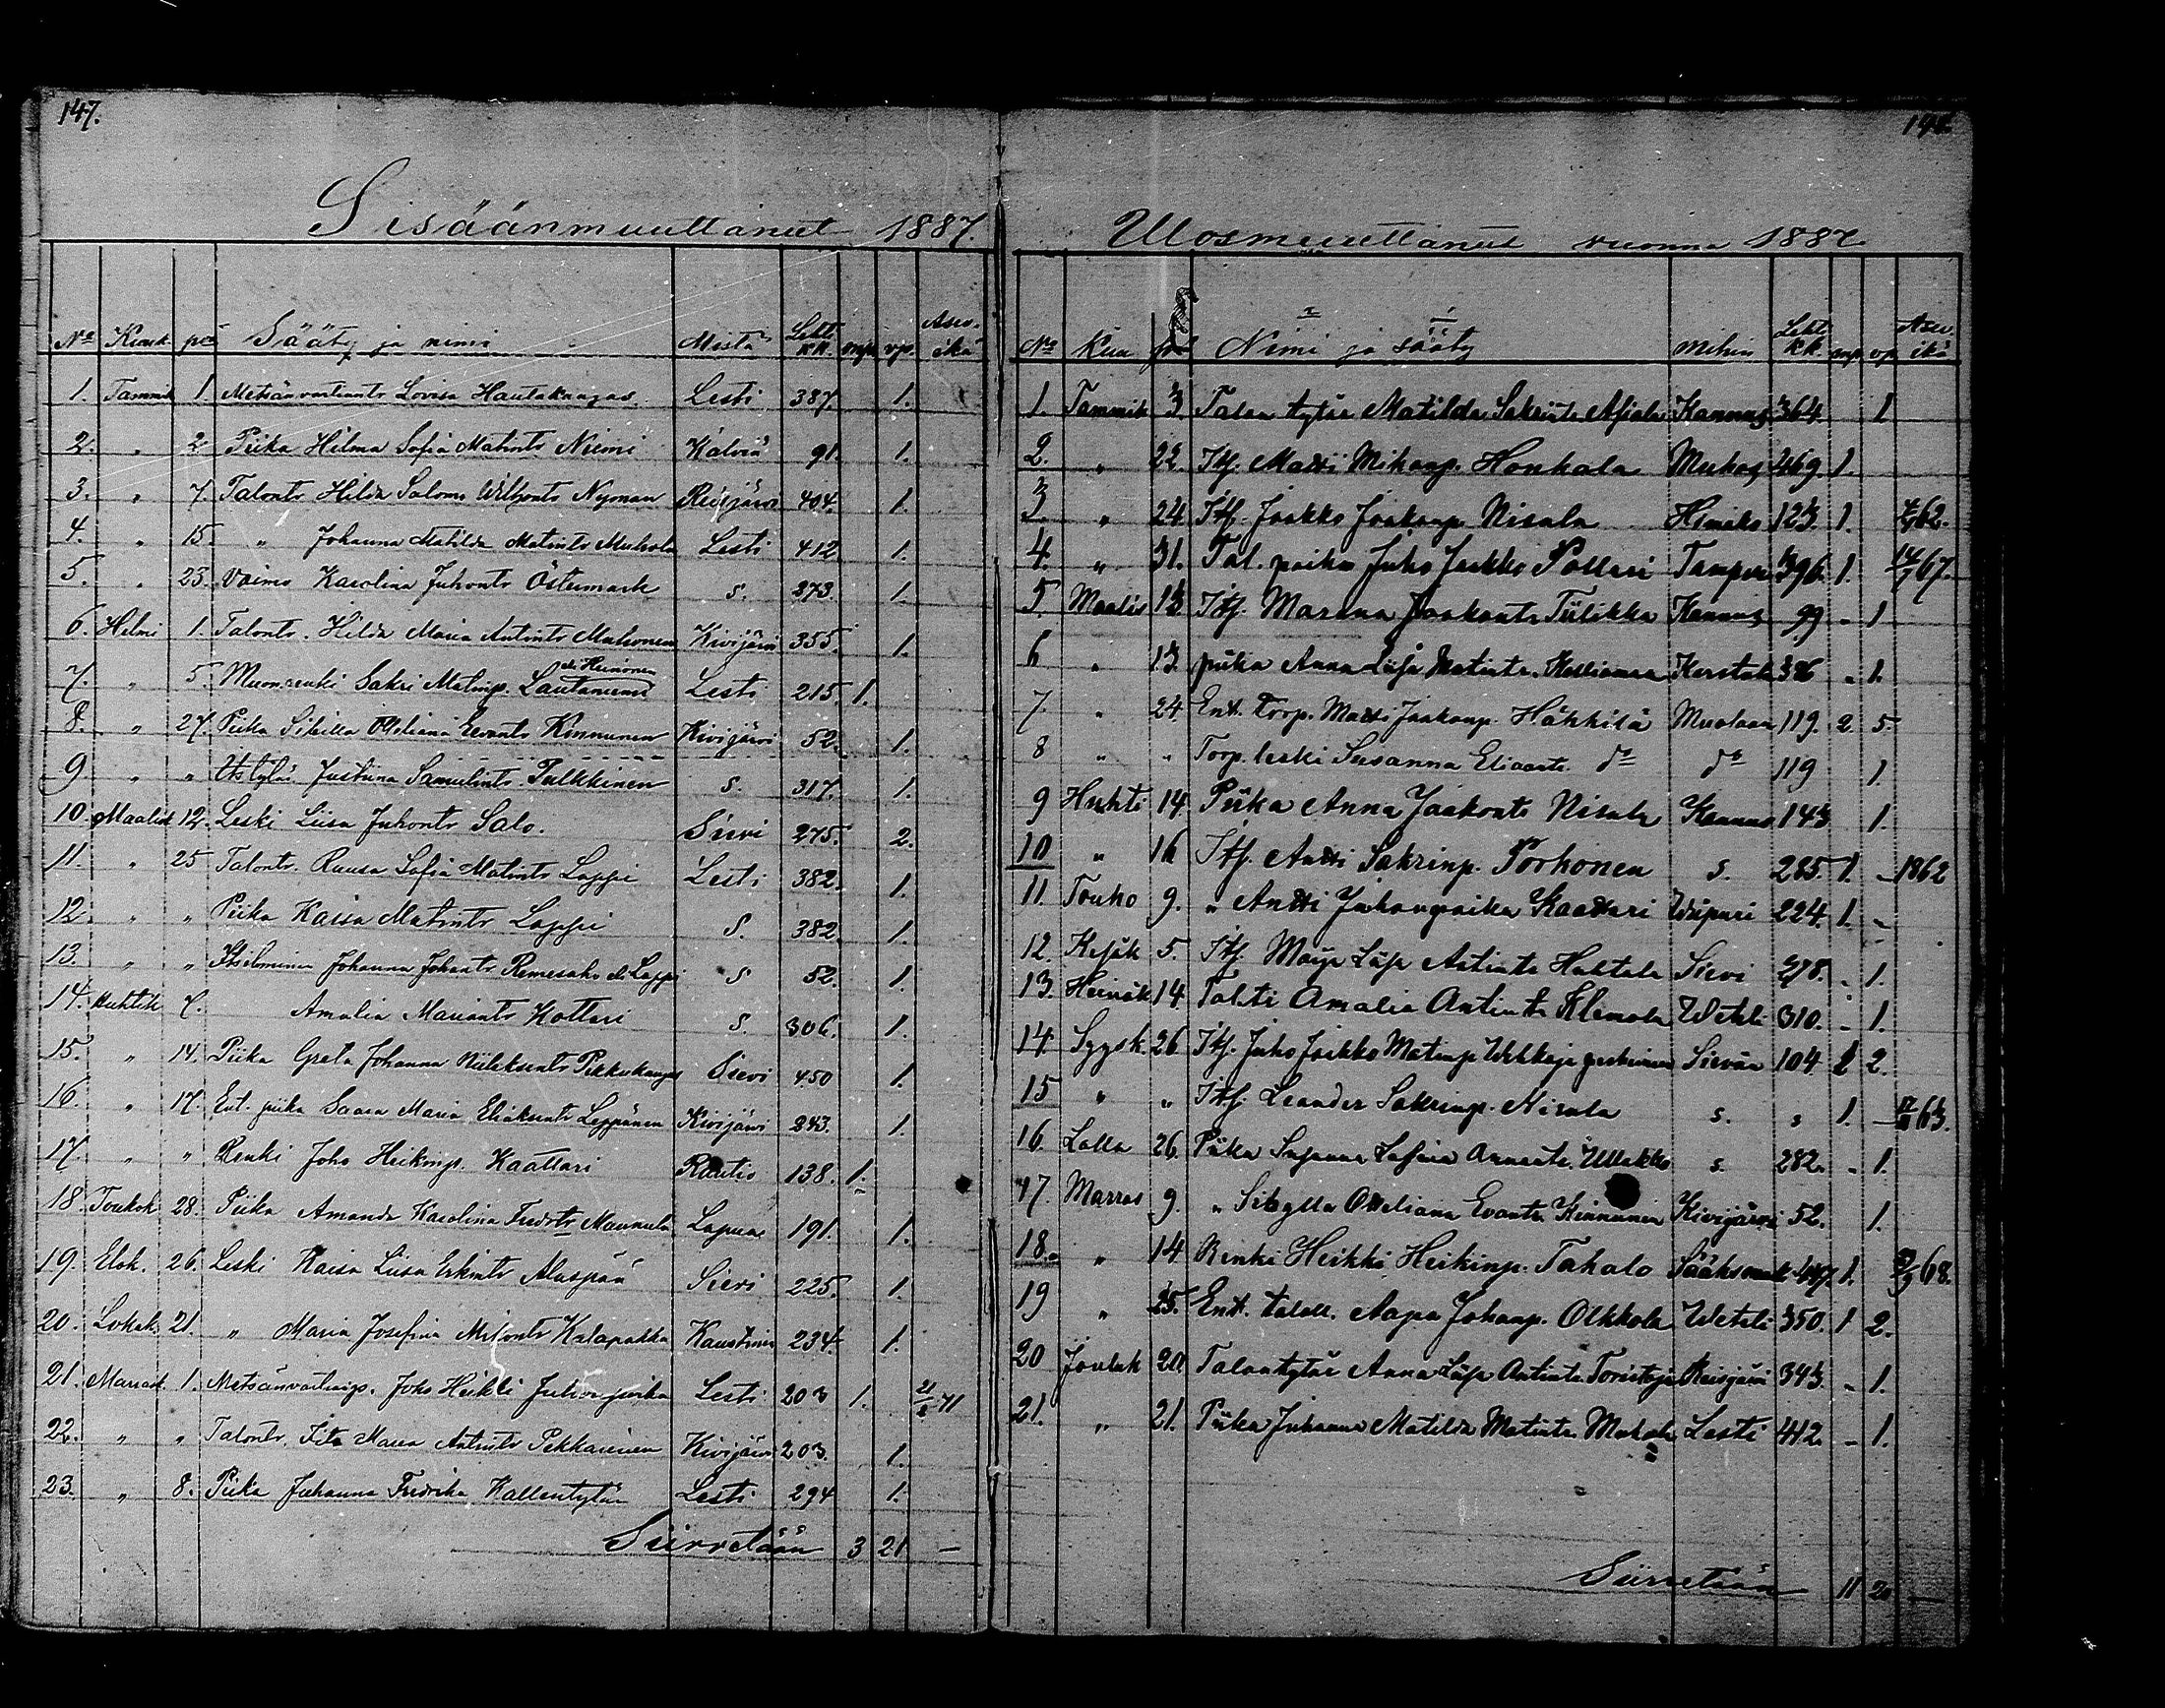 147.
Sisäänmuuttanut 1887.
No Kuuk. pä Sääty ja nimi Mistä Lehti KK. mp. vp. Asev. ikä
1. Tammik 1. Metsänvartiantr Lovisa Hautakangas Lesti 387. 1.
2. " 2 Piika Hilma Sofia Matintr Niemi Kälviä 91. 1.
3. " 7. Talontr Hilda Salome Nyman Reisjärvi 404. 1.
4. " 15. " Johanna Matilda Matintr Muhola Lesti 412 1.
5. " 23. Vaimo Karolina Juhontr Östermark s. 273. 1.
6. Helmi 1. Talontr. Hilda Maria Antintr Muhonen Kivijärvi 355. 1.
7. " 5. Muon renki Sakri Matinp. Lautaniemi Lesti 215. 1.
8. " 27. Piika Sibilla Otteliana Evantr Kinnunen Kivijärvi 52. 1.
9 " " Its tytär Justiina Samulintr. Pulkkinen s. 317. 1.
10. Maalisk 12. Leski Liisa Juhontr Salo. Sievi 275. 2.
11. " 25 Talontr. Ruusa Sofia Matintr Lappi Lesti 382. 1.
12. " " Piika Kaisa Matintr Lappi s. 382. 1.
13. " " Itsellinen Johanna Johantr Remesaho Lappi s 52. 1.
14. Huhtik 7. Amalia Mariantr Kottari s. 306. 1.
15. " 14. Piika Greta Johanna Pikkukangas Sievi 450 1.
16. " 17. Ent. piika Saara Maria Eliaksentr Leppänen Kivijärvi 243. 1.
17. " " Renki Joho Heikinp. Kaattari Rautio 138. 1.
18. Toukok 28. Piika Amanda Karolina Fredrtr Mannula Lapua 191. 1.
19. Elok. 26. Leski Kaisa Liisa Erkintr Alaspää Sievi 225. 1.
20. Lokak 21. " Maria Josefina Kalapakka Kaustinen 234. 1.
21. Marrask 1. Joho Heikki Juhonpoika Lesti 203 1. 71
22. " " Talontr. Fita Maria Antintr Pekkarinen Kivijärvi 203. 1.
23. " 8. Piika Juhanna Fredrika Kallentytär Lesti 294 1.
Siirretään 3 21 —
148.
Ulosmuuttanut vuonna 1887.
No Kuu pä Nimi ja sääty Mihin Leht. KK. mp. vp. Asev. ikä
1. Tammik 3. Talon tytär Matilda Sakrintr. Kannus 364. 1
2. " 22. Its. Matti Mikonp. Honkala 469. 1.
3. " 24. Itf. Jaakko Jaakonp. Nisula Himako 123. 1. 62.
4. " 31. Tal. poika Juho Jaakko Pollari Tamper 396. 1. 67.
5. Maalis 13. Itf. Jaakontr Tiilikka Kannus 99 - 1
6 " 13. piika Anna Liisa Matintr. 326 - 1.
7. " 24. Ent. Torp. Matti Jaakonp. Häkkilä Muolaan 119. 2. 5.
8 " " Torp. leski Susanna do do 119 1.
9 Huhti 14. Piika Anna Jaakontr Nisula Kannus 143 1.
10 " 16 Itf. Antti Sakrinp. Torhonen s. 285. 1. - 1862
11. Touko 9. " Antti Juhonpoika Kaattari Wiipuri 224. 1. -
12. Kesäk 5. Itf. Liisa Antintr Huhtala Sievi 278. - 1.
13. Heinäk 14. Talti Amalia Antintr Klemola Weteli 310. - 1.
14. Syysk. 26. Itf. Juho Jaakko Matinp. Sievin 104. 2.
15 " " Itf. Leander Sakrinp. Nisula s. s 1. - 63.
16. Loka 26. Piika Susanna Ullakko s. 282. - 1.
17. Marras 9. " Sibylla Otteliana Evantr. Kinnunen Kivijärvi 52. 1.
18. " 14 Renki Heikki Heikinp. Tahalo Sääksmäki 447. 1. 68.
19 " 25. Ent. taloll. Aapo Johanp. Olkkola Wetelli 350. 1 2.
20 Jouluk 20. Talontytär Anna Liisa Antintr. Reisjärvi 343. - 1.
21. " 21. Piika Juhanna Matilda Matintr. Muhola Lesti 412. - 1.
Siirretään 11 20 —